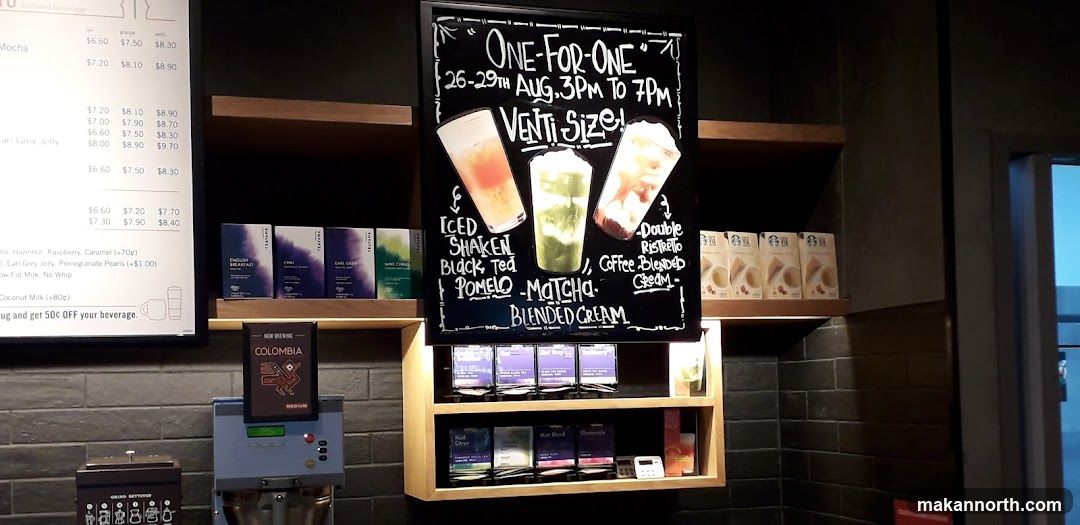 blended beverage
tall grande venti
Mocha $6.60 $7.50 $8.30
$7.20 $8.10 $8.90
$7.20 $8.10 $8.90
$7.00 $7.90 $8.70
Earl Grey Jelly $6.60 $7.50 $8.30
$8.00 $8.90 $9.70
$6.60 $7.50 $8.30
$6.60 $7.20 $7.70
$7.30 $7.90 $8.40
Hazelnut, Raspberry, Caramel (+70¢)
Earl Grey Jelly, Pomegranate Pearls (+$1.00)
Milk, No Whip
Coconut Milk (+80¢)
and get 50¢ OFF your beverage.
"ONE-FOR-ONE"
26-29TH AUG. 3PM TO 7PM
VENTI SIZE!
ICED
SHAKEN
BLACK TEA
POMELO
DOUBLE
RISTRETO
COFFEE BLENDED
CREAM
MATCHA
BLENDED CREAM
TEAVANA
ENGLISH
BREAKFAST
TEAVANA
CHAI
TEAVANA
EARL GREY
TEAVANA
MINT CITRUS
VIA
NOW BREWING
COLOMBIA
MEDIUM
Earl Grey
Mint
Citrus
Mint Blend
Chamomile
GRIND SETTINGS
makannorth.com